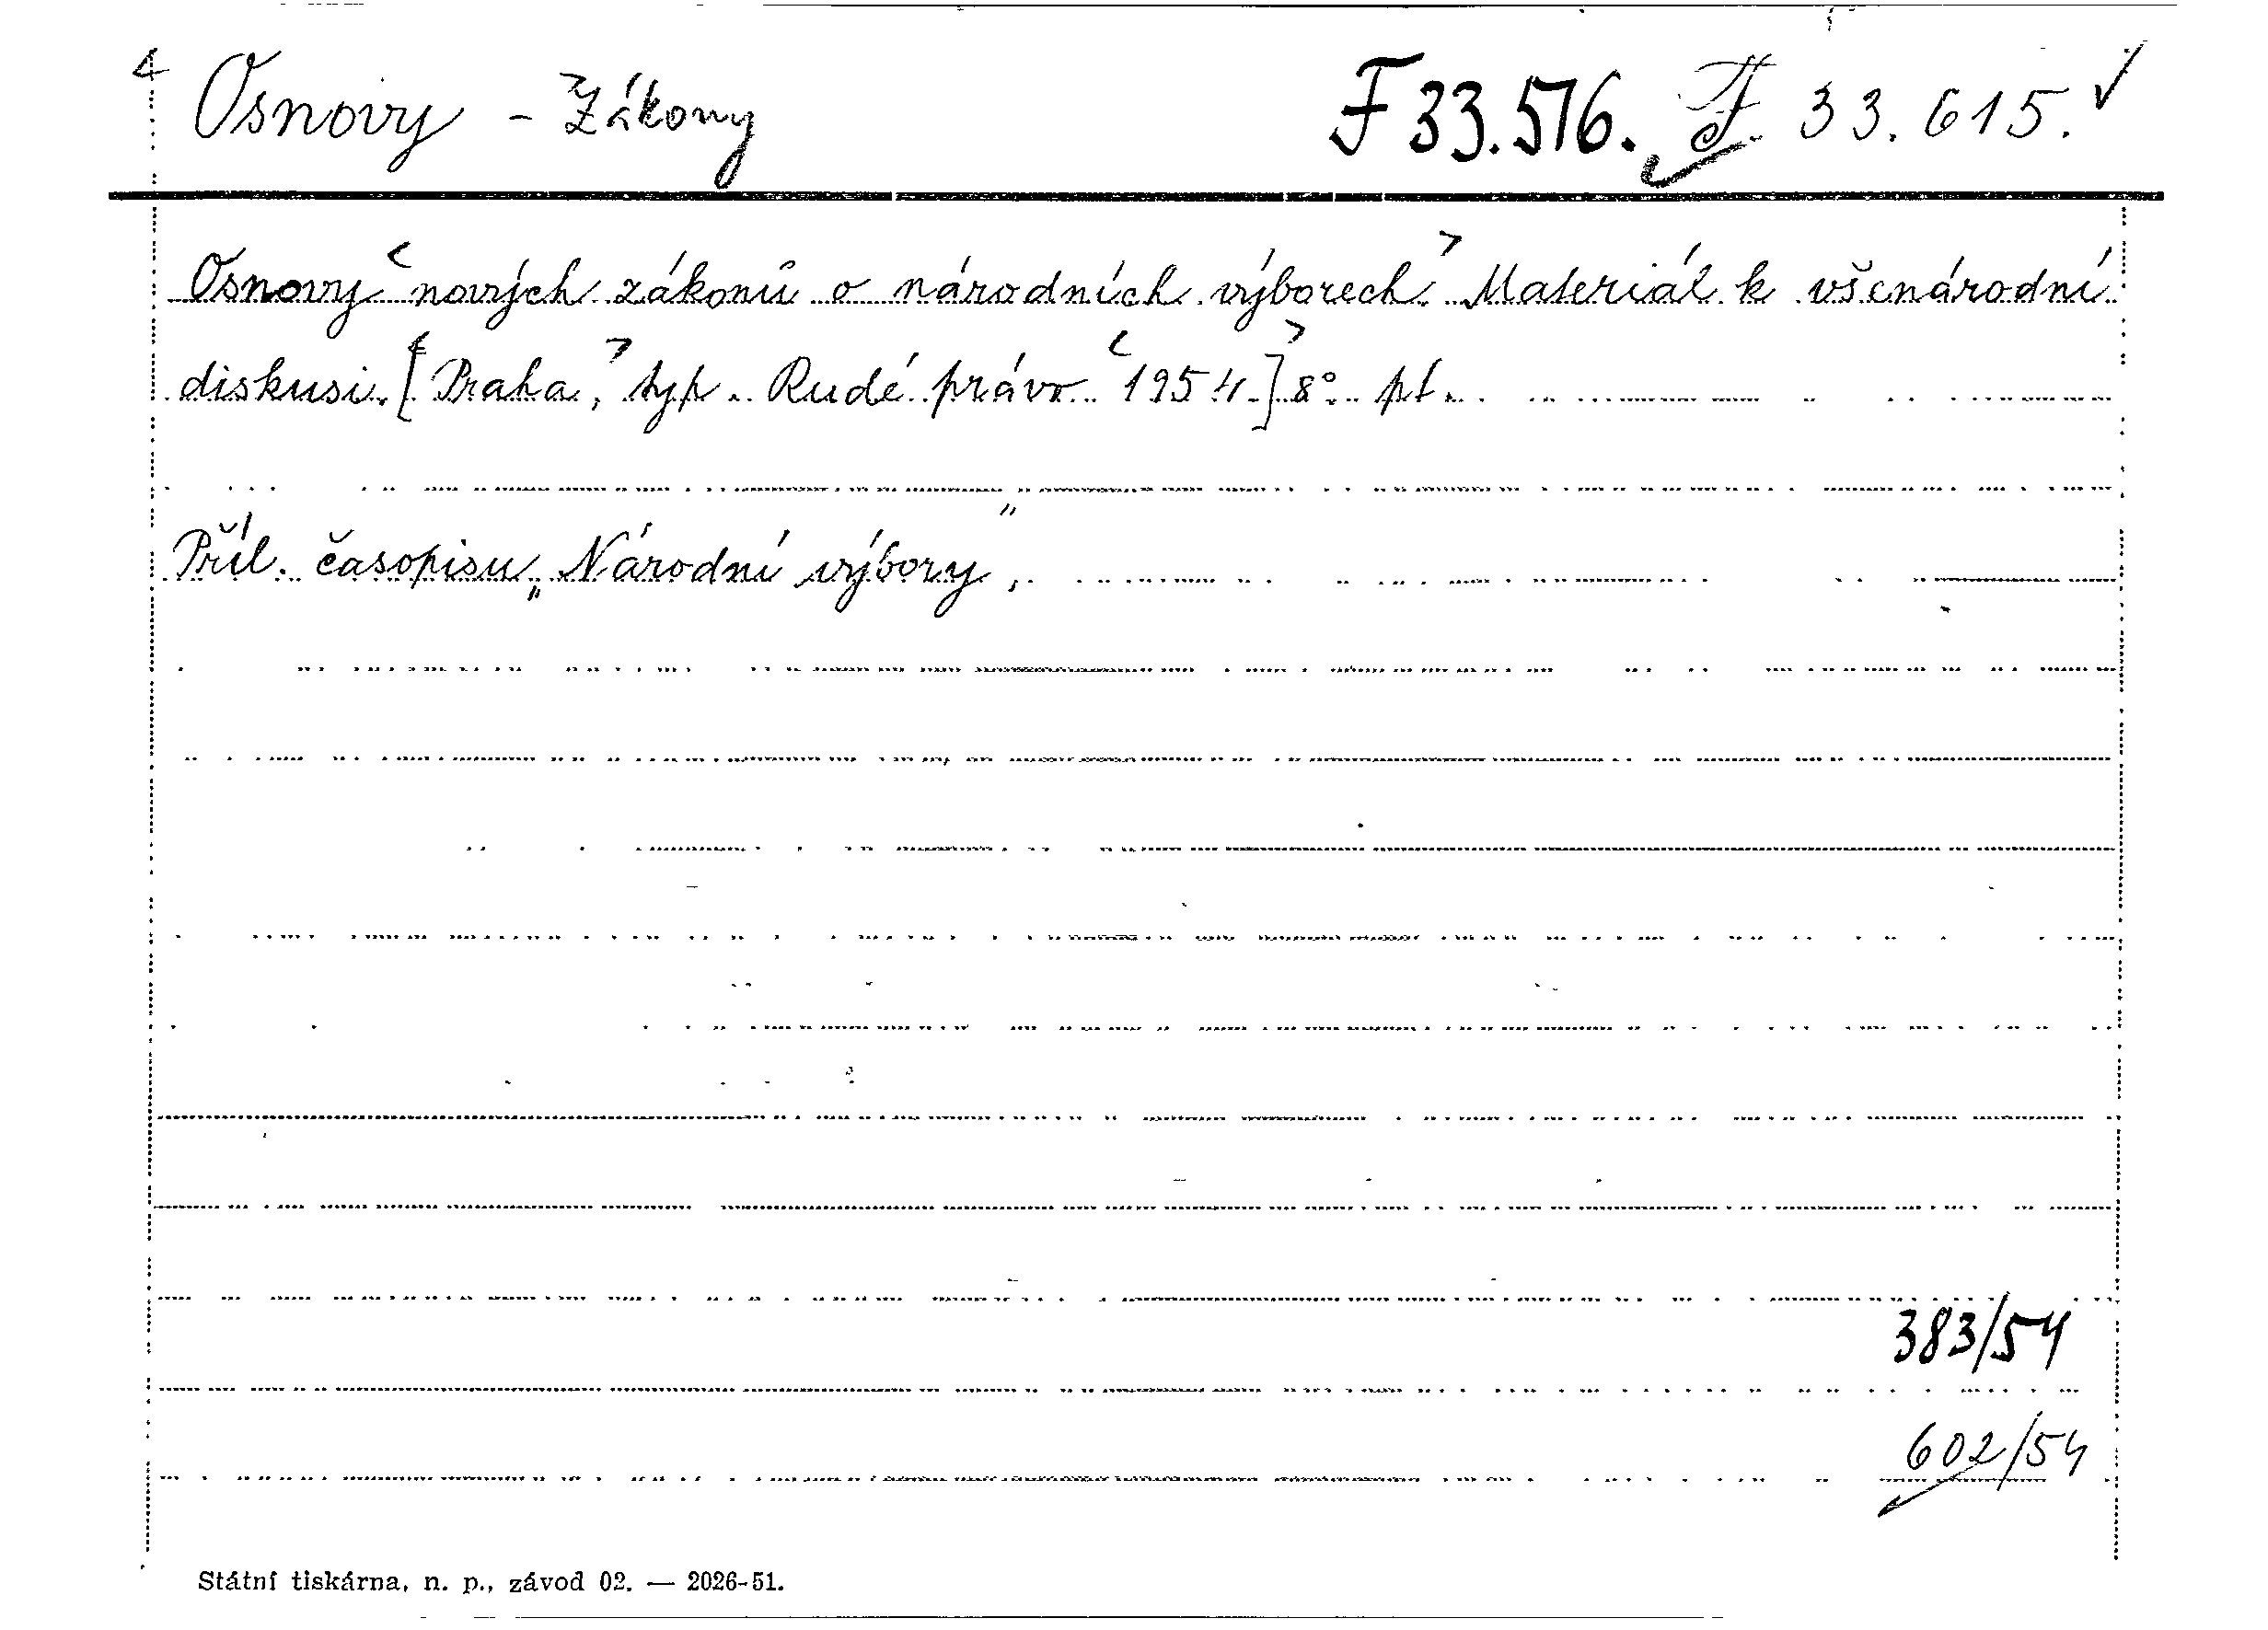 Osnovy - Zákony F 33.576. F. 33.615.
Osnovy nových zákonů o národních výborech. Materiál k všenárodní
diskusi. [Praha, typ. Rudé právo 1954.] 8°. pt.
Příl. časopisu „Národní výbory",
383/54
602/54
Státní tiskárna, n. p., závod 02. — 2026-51.